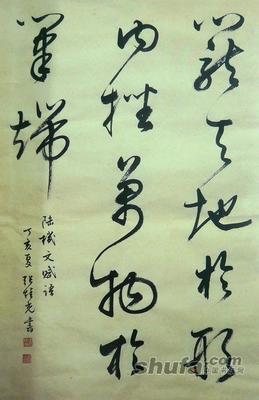 籠天地於形
内挫萬物於
筆端
陸機文賦語
丁亥夏 張光書
shufa.com